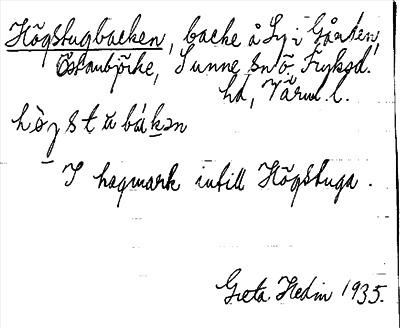 Högstugbacken, backe å Ly i Gården,
Östanbjörke, Sunne sn Ö. Fryksd.
hd, Värml. l.
I hagmark intill Högstuga.
Greta Hedin 1935.